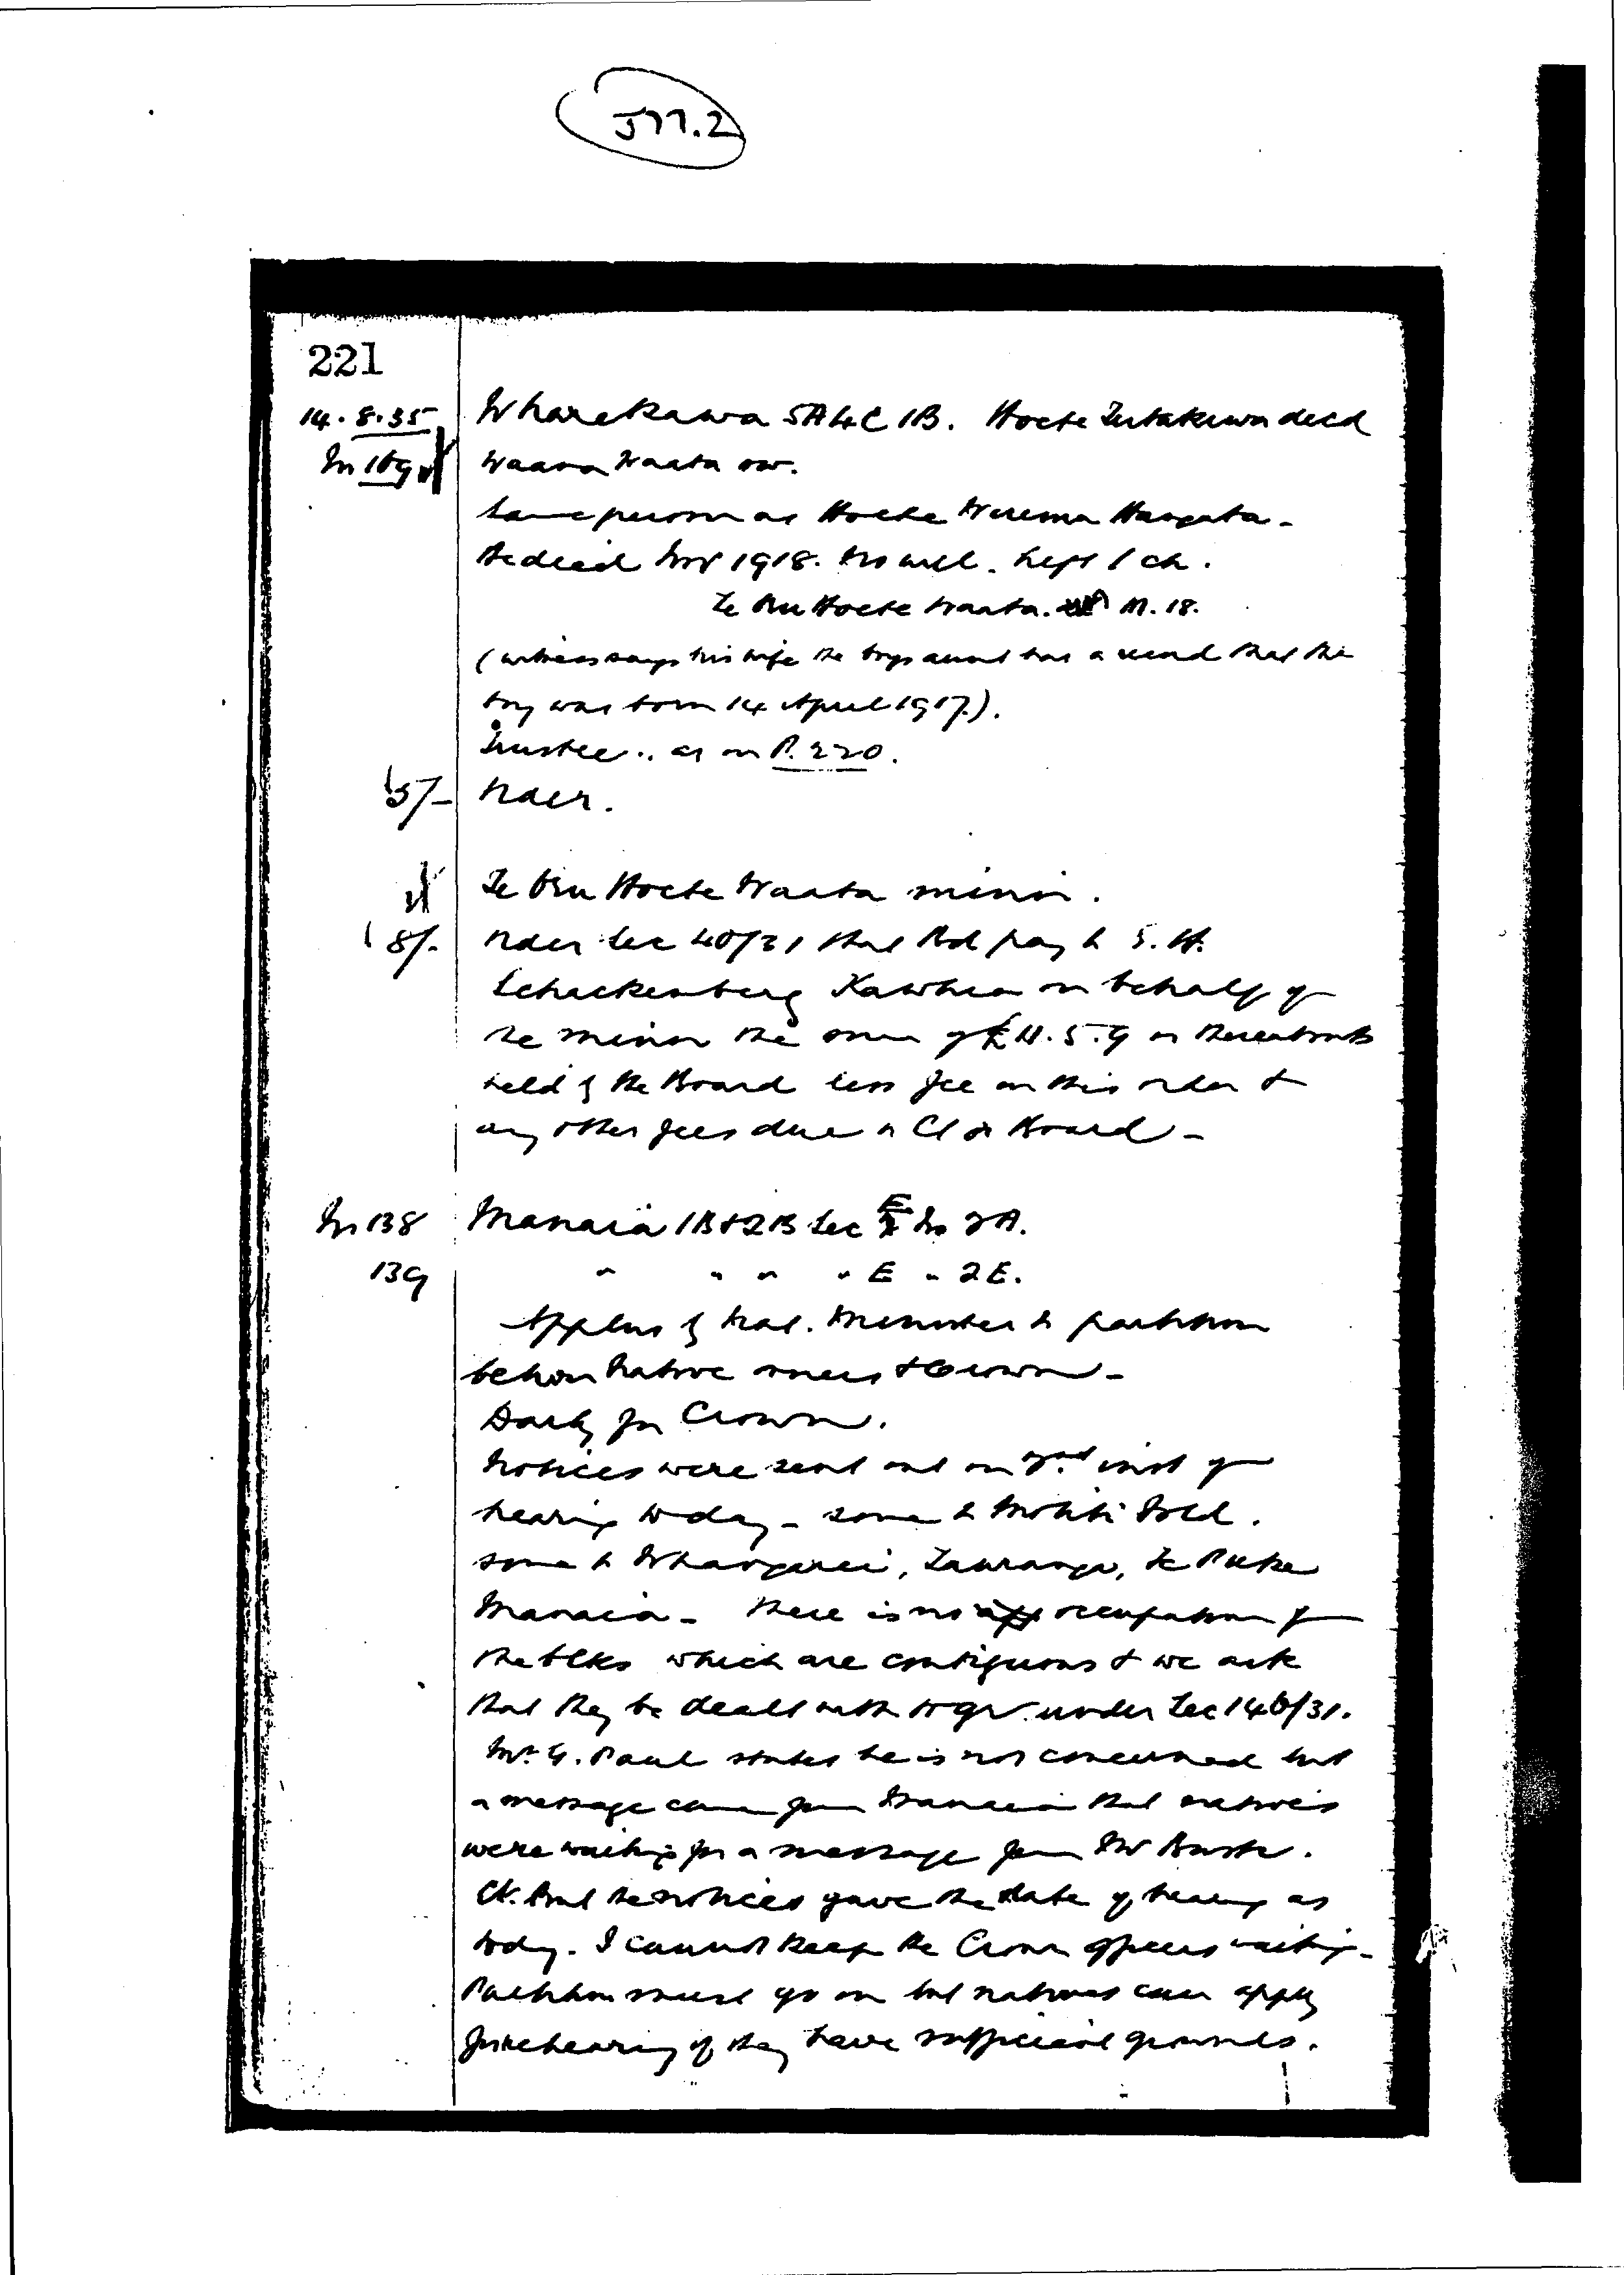 JM.2
221
14.8.35 Wharekawa 5A4C 1B. Hoete decd
In 169 Waata sw.
Same person as Hoete Hangata -
He died Nov 1918. No will. Left 1 ch.
Te Oru Hoete Waata. M. 18.
(witness says his wife the boys aunt has a record that the
boy was born 14 April 1917.).
Trustee .. as on P. 220.
5/- Order.
Te Oru Hoete Waata minor.
8/- Order Sec /31 that Bd pay to S. H.
Schnackenberg Kawhia on behalf of
the minor the sum of £11.5.9 or thereabouts
held by the Board less fee on this order &
any other fees due to Ct or Board -
In 138 Manaia 1B & 2B Sec E No 2A.
139 " " " " E " 2E.
Applns by Nat. Minister to partition
between Native owners & Crown -
Darby for Crown.
Notices were sent out on inst of
hearing today - some to Motiti Isld.
some to Whangarei, Tauranga, Te Puke
Manaia - there is no occupation of
the blks which are contiguous & we ask
that they be dealt with togr. under Sec 146/31.
Mr G. Paul states he is not concerned but
a message came from Manaia that natives
were waiting for a message from Mr Bush.
Ct. But the notices gave the date of hearing as
today. I cannot keep the Crown officers waiting -
Partition must go on but natives can apply
for rehearing if they have sufficient grounds.